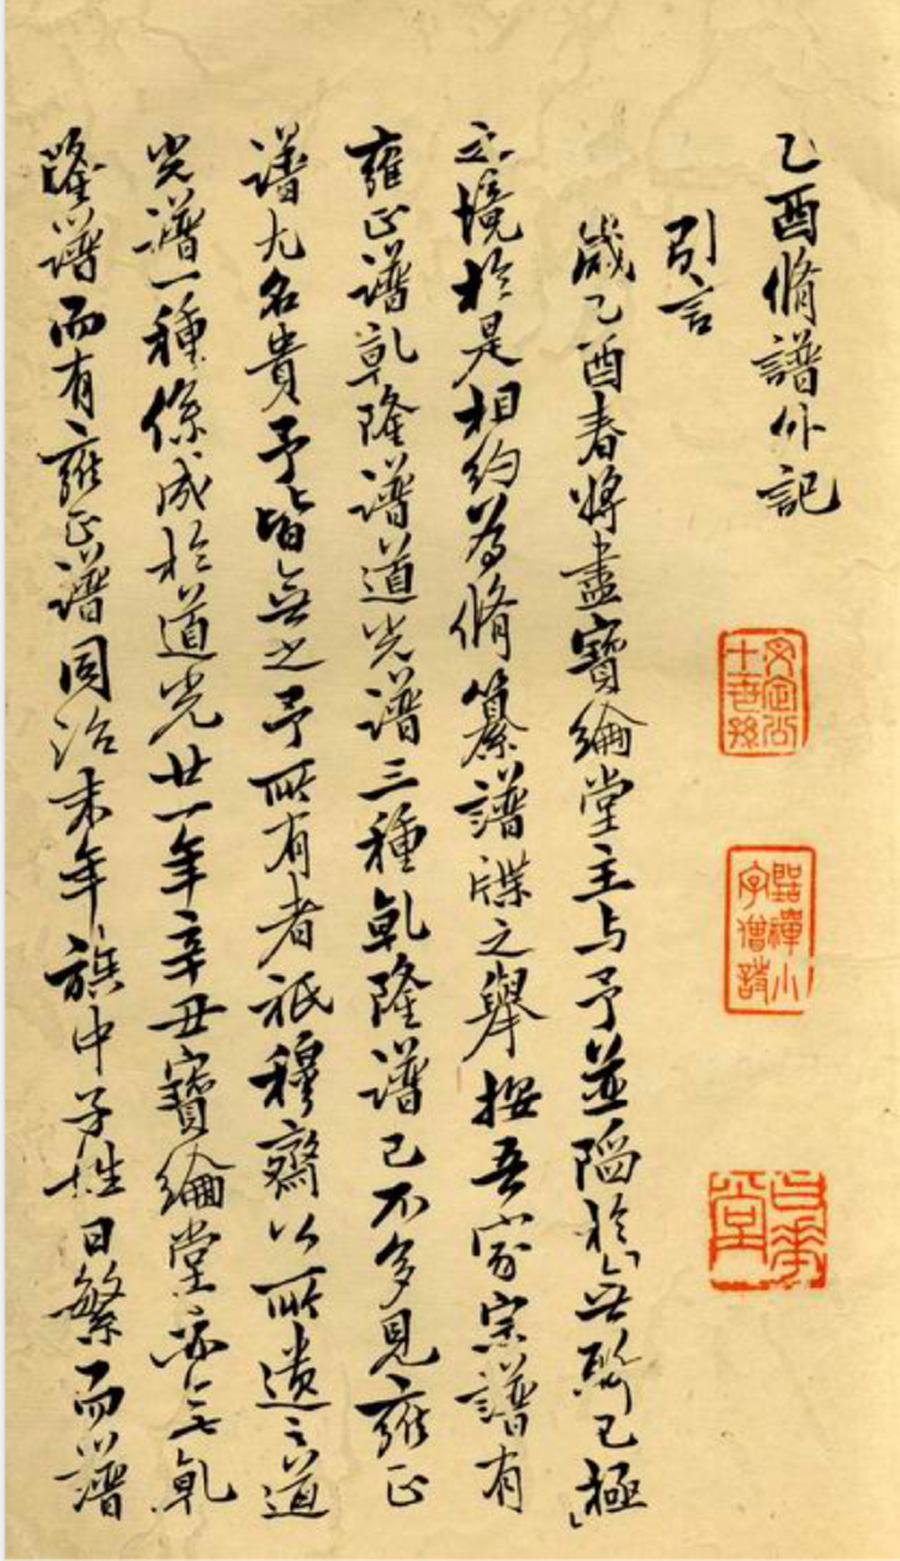 乙酉脩譜外記
引言
歲乙酉春將盡寶綸堂主与予並陷於「無聊已極」
之境於是相約為脩纂譜牒之舉按吾家宗譜有
雍正譜乾隆譜道光譜三種乾隆譜已不多見雍正
譜尤名貴予皆無之予所有者祇穆齋公所遺之道
光譜一種係成於道光廿一年辛丑寶綸堂亦無乾
隆譜而有雍正譜同治末年族中子姓日繁而譜
文定公
十世孫
聖禪小
字僧護
堂